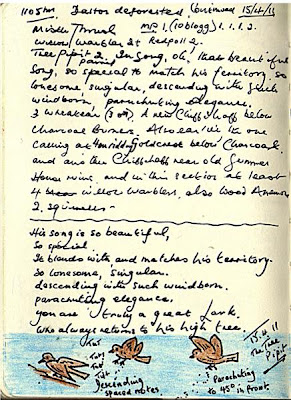 1105hrs Easton deforested (Continued 15/4/11
Mistle Thrush MP 1. (10 blogg) 1. 1. 2. 2.
Willow Warbler 2 & Redpoll 2.
Tree Pipit 2 pairing In Song, oh! that beautiful
Song, so special to match his territory. so
lonesome, singular, descending with such
windborn, parachuting elegance.
3 Wheatear A new Chiffchaff below
Charcoal Burner. Also earlier the one
calling at Goldcrest below Charcoal.
and another Chiffchaff near old Summer
House ring, and in this section at least
4 willow warblers, also Wood Anemone
2. squirrels
His song is so beautiful,
So special
So blends with and matches his territory.
So lonesome, Singular.
descending with such windborn.
parachuting elegance.
you are truly a great Lark.
who always returns to his high tree.
15.4.11
The Tree Pipit
Descending
spaced notes
Parachuting
to 45° in front